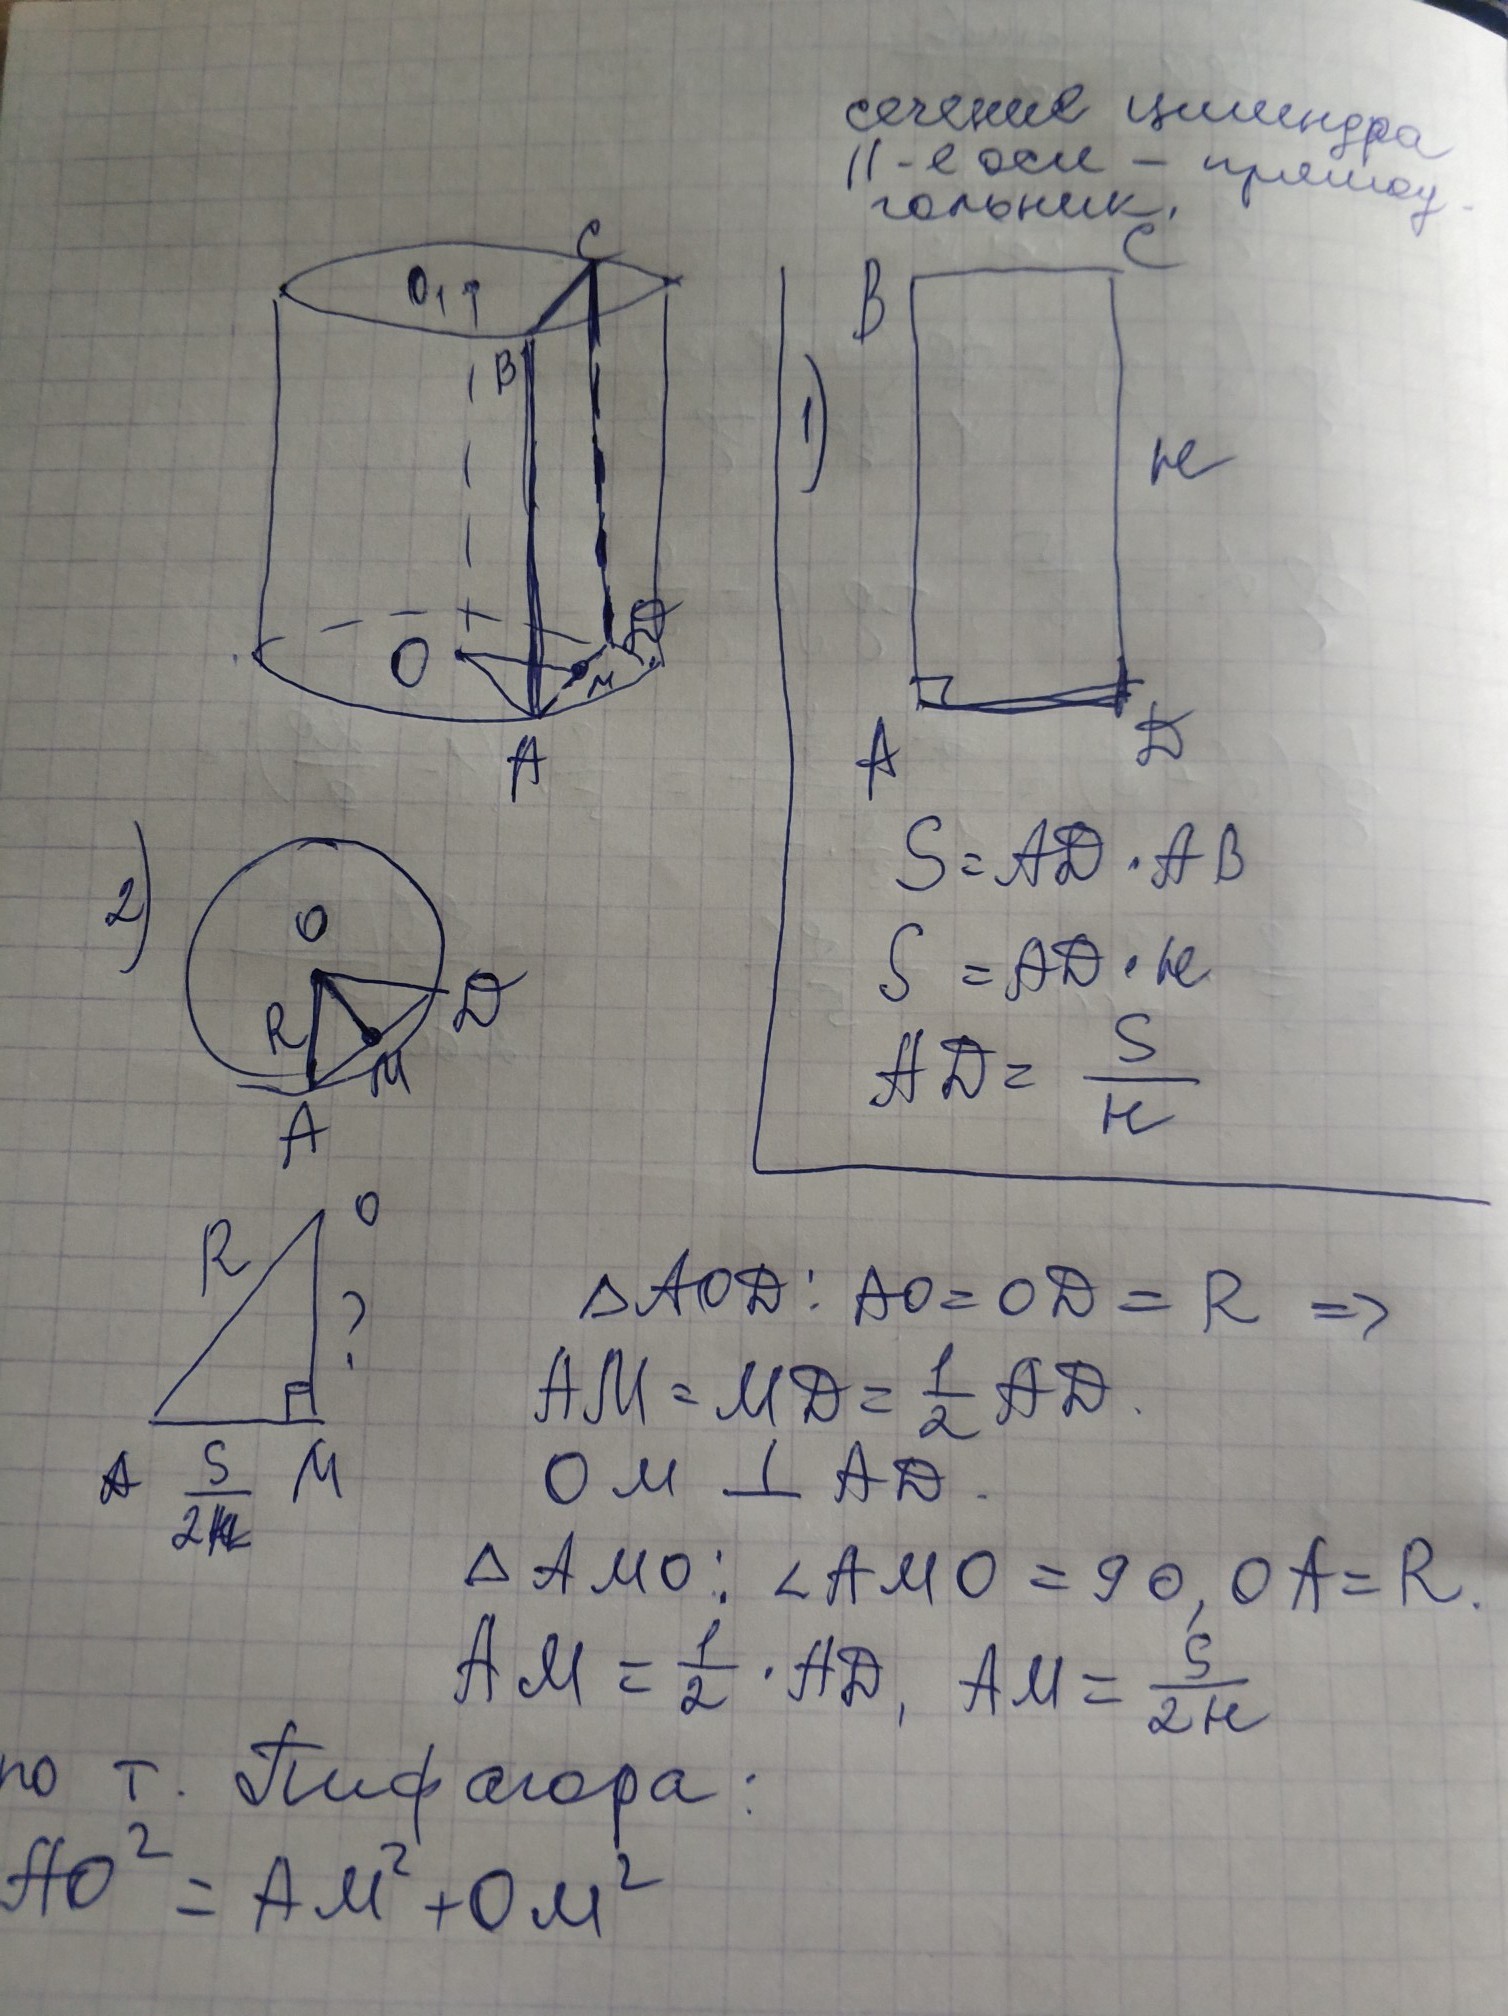 сечение цилиндра
||-е оси – прямоу-
гольник.
C
O₁
B
O
M
D
A
1)
B
C
H
A
D
S = AD · AB
S = AD · H
AD = S/H
2)
O
R
D
M
A
R
O
?
A
S/2H
M
△AOD: AO = OD = R =>
AM = MD = 1/2 AD.
OM ⊥ AD.
△AMO: ∠AMO = 90, OA = R.
AM = 1/2 · AD, AM = S/2H
по т. Пифагора:
AO² = AM² + OM²